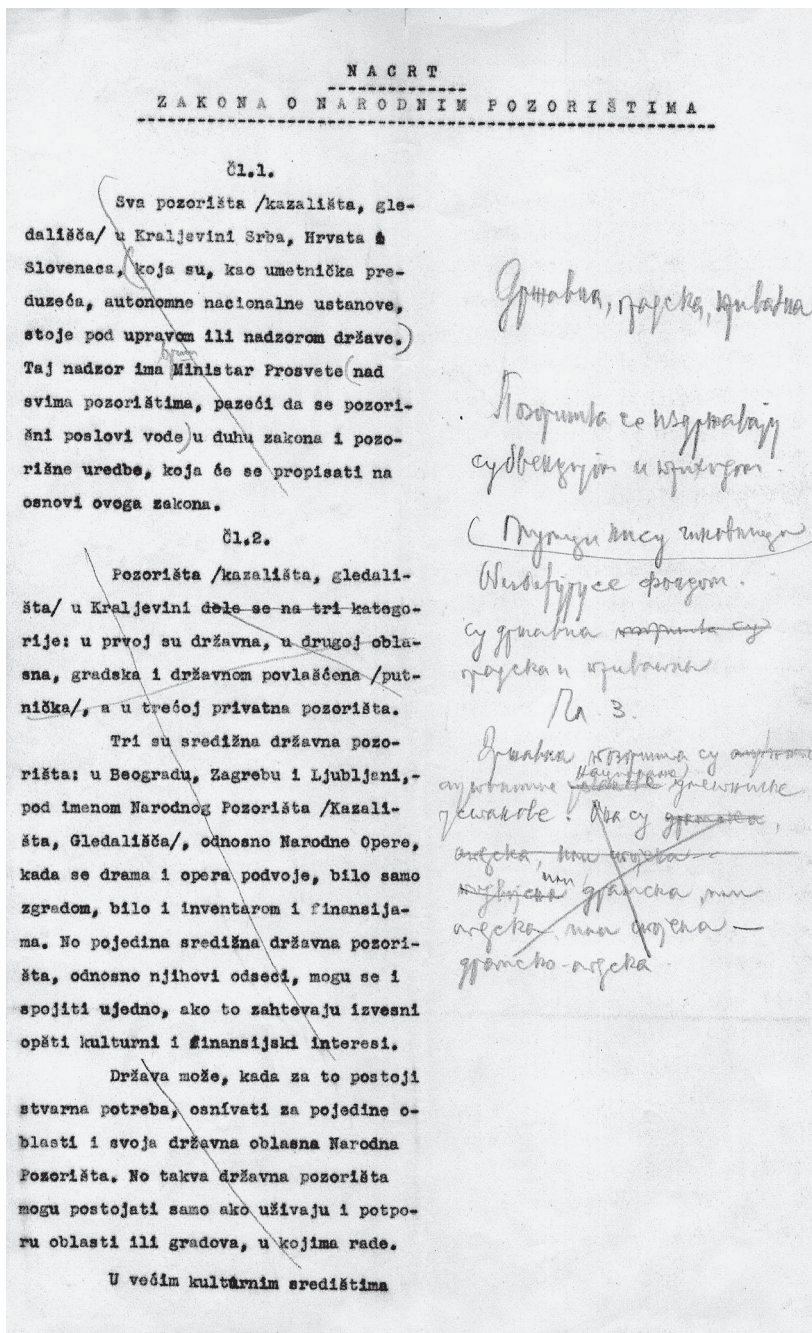 NACRT
ZAKONA O NARODNIM POZORIŠTIMA
Čl.1.
Sva pozorišta /kazališta, gle-
dališča/ u Kraljevini Srba, Hrvata i
Slovenaca, koja su, kao umetnička pre-
duzeća, autonomne nacionalne ustanove,
stoje pod upravom ili nadzorom države.
Taj nadzor ima Ministar Prosvete nad
svima pozorištima, pazeći da se pozori-
šni poslovi vode u duhu zakona i pozo-
rišne uredbe, koja će se propisati na
osnovi ovoga zakona.
Čl.2.
Pozorišta /kazališta, gledali-
šta/ u Kraljevini dele se na tri katego-
rije: u prvoj su državna, u drugoj obla-
sna, gradska i državnom povlašćena /put-
nička/, a u trećoj privatna pozorišta.
Tri su središna državna pozo-
rišta: u Beogradu, Zagrebu i Ljubljani,-
pod imenom Narodnog Pozorišta /Kazali-
šta, Gledališča/, odnosno Narodne Opere,
kada se drama i opera podvoje, bilo samo
zgradom, bilo i inventarom i finansija-
ma. No pojedina središna državna pozori-
šta, odnosno njihovi odseci, mogu se i
spojiti ujedno, ako to zahtevaju izvesni
opšti kulturni i finansijski interesi.
Država može, kada za to postoji
stvarna potreba, osnívati za pojedine o-
blasti i svoja državna oblasna Narodna
Pozorišta. No takva državna pozorišta
mogu postojati samo ako uživaju i potpo-
ru oblasti ili gradova, u kojima rade.
U većim kulturnim središtima
Државна, градска, приватна
Позоришта се издржавају
субвенцијом и приходом.
Глумци нису чиновници
фондом.
су државна позоришта су
градска и приватна
Чл. 3.
Државна позоришта су
Националне
установе. Она су драмска,
оперска, или спојена
или драмска, или
оперска, или спојена —
драмско-оперска